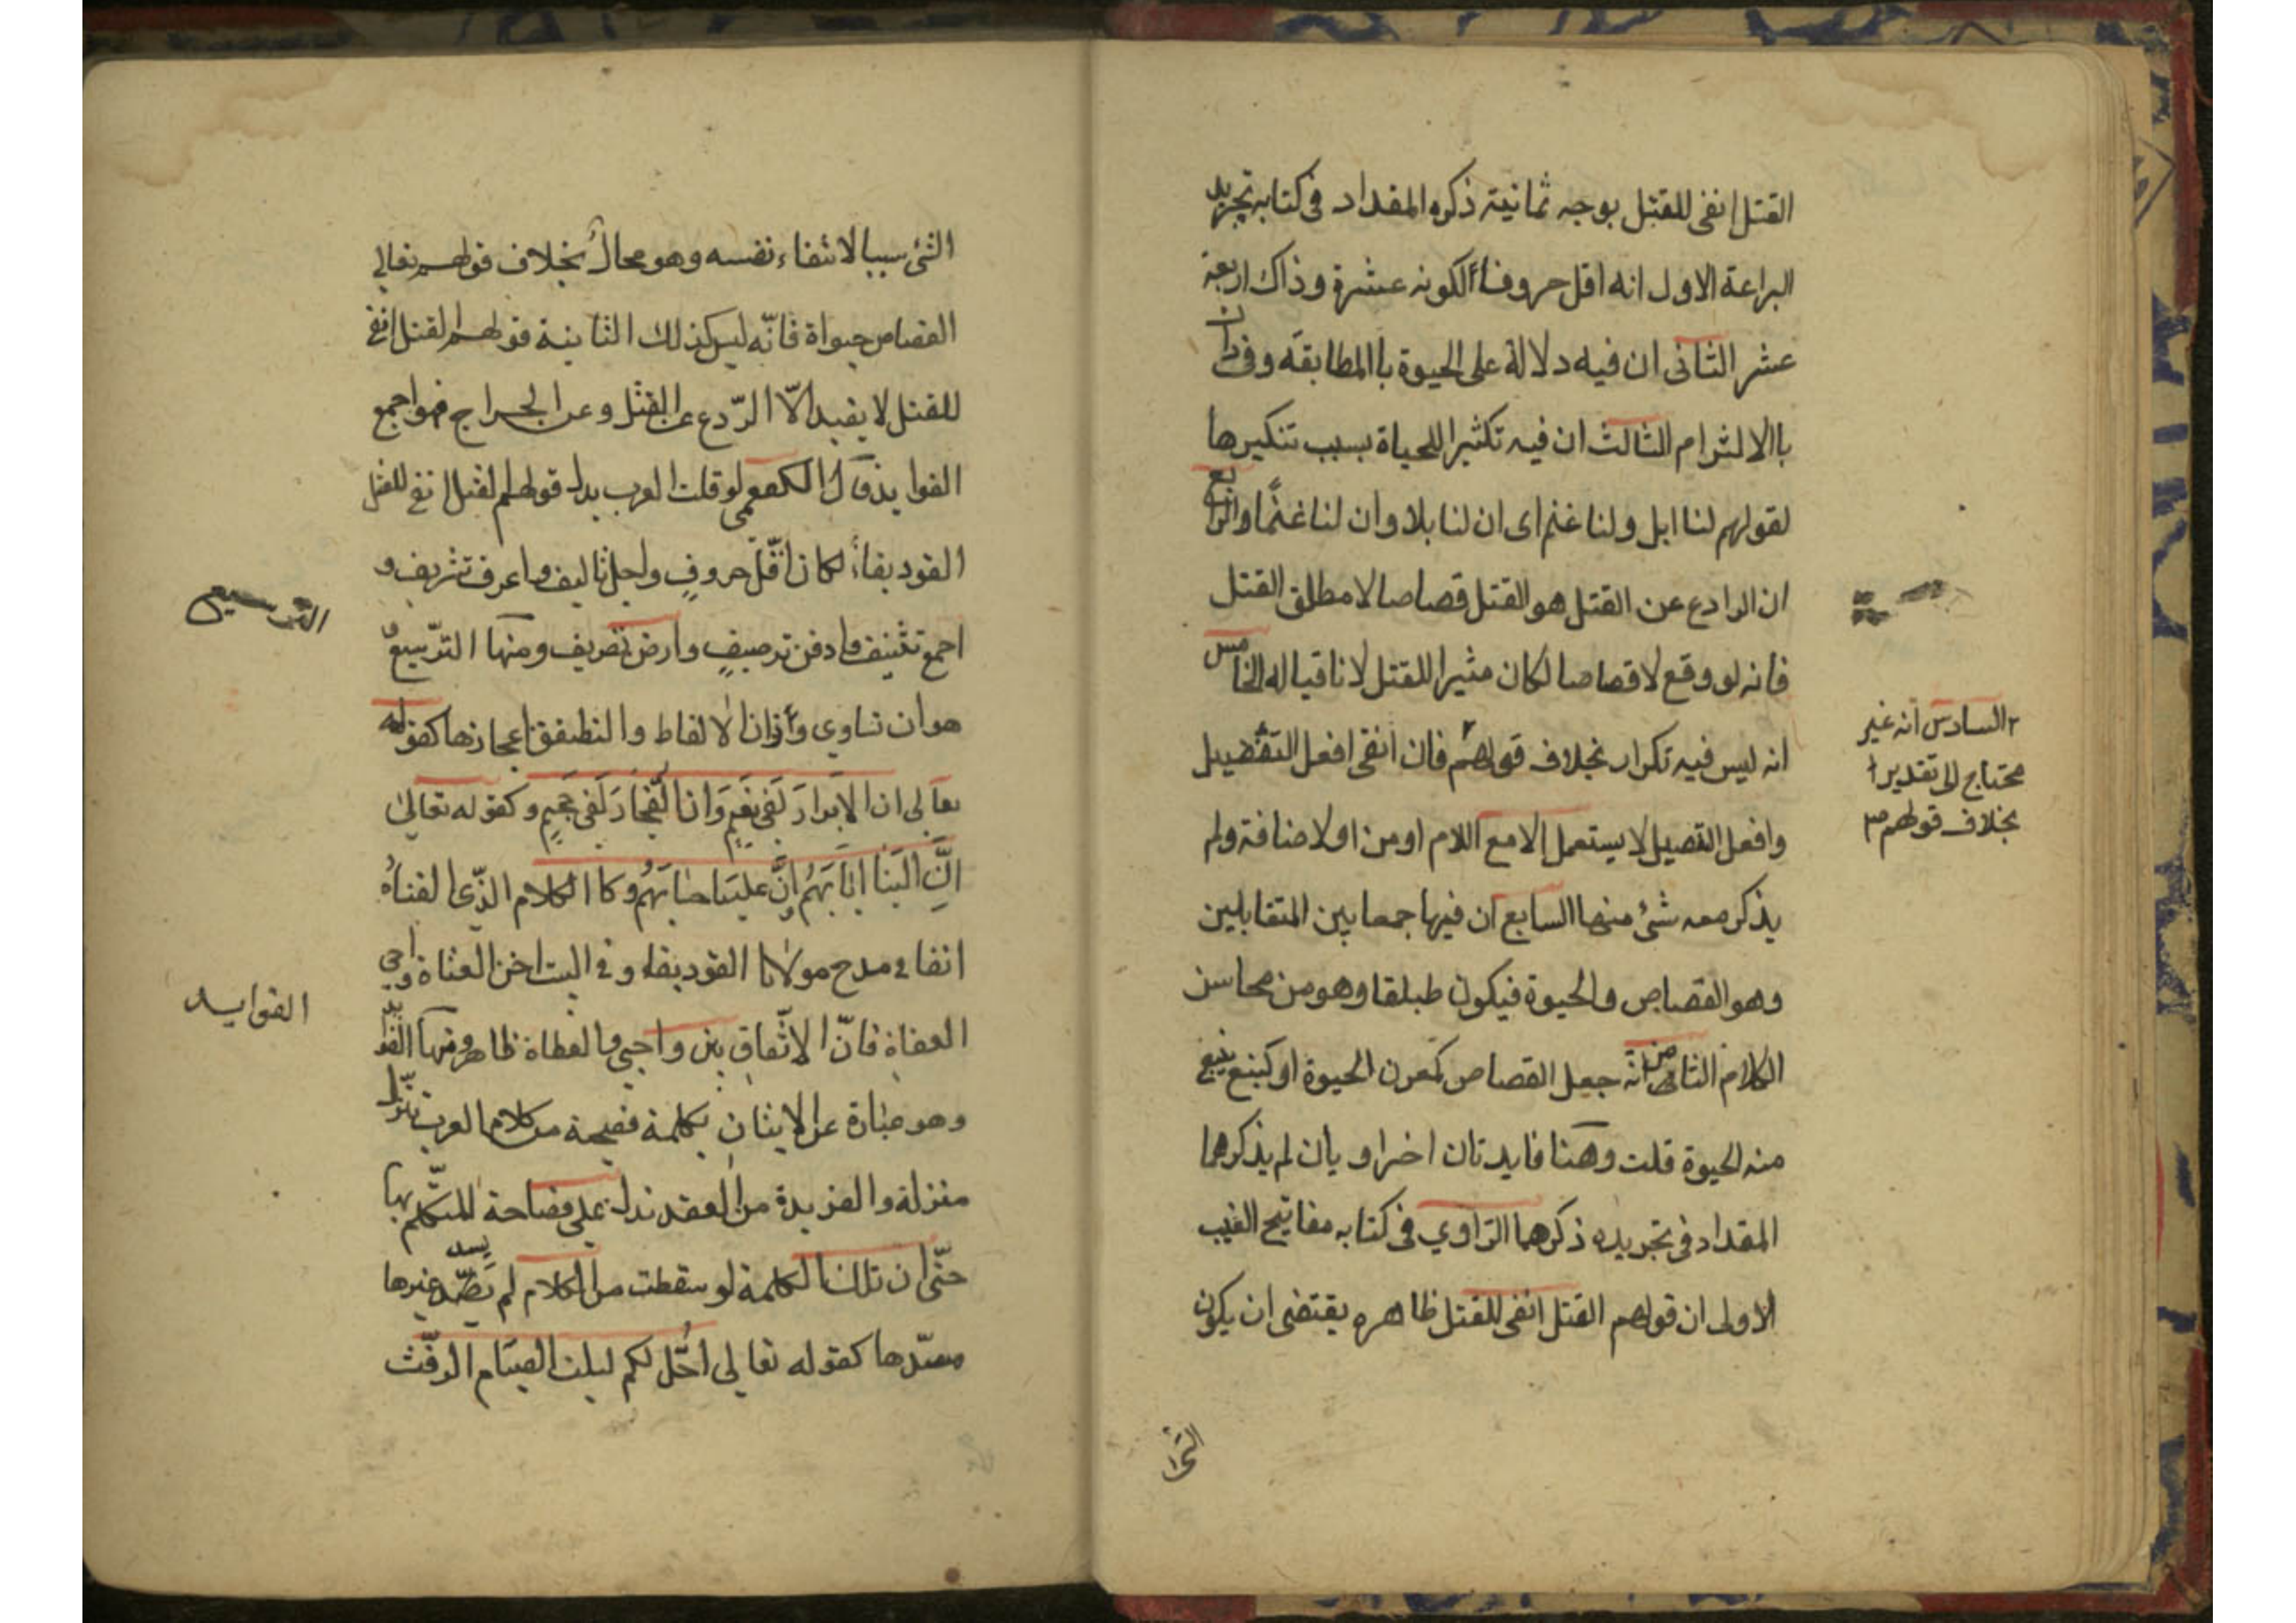 القتل انفى للقتل بوجه ثمانية ذكره المقداد فى كتابه تجريد
البراعة الاول انه اقل حروفا لكونه عشرة وذاك اربعة
عشر الثانى ان فيه دلالة على الحيوة باالمطابقة وفى ذان
باالالتزام الثالث ان فيه تكثيرا للحياة بسبب تنكيرها
لقولهم لنا ابل ولنا غنم اى ان لنا بلا وان لنا غنمًا والرابع
ان الرادع عن القتل هو القتل قصاصا لا مطلق القتل
فانه لو وقع لا قصاصا لكان مثيرا للقتل لا نافيا له الخامس
انه ليس فيه تكرار بخلاف قولهم فان انفى افعل التفضيل
وافعل التفصيل لا يستعمل الا مع اللام او من او لاضافة ولم
يذكر معه شئ منها السابع ان فيها جمعا بين المتقابلين
وهو القصاص والحيوة فيكون طبلقا وهو من محاسن
الكلام الثامن انه جعل القصاص كمعدن الحيوة او كنبع ينبع
منه الحيوة قلت وهنا فايدتان اخراويان لم يذكرهما
المقداد فى تجريده ذكرهما الرازي فى كتابه مفاتيح الغيب
الاولى ان قولهم القتل انفى للقتل ظاهره يقتضى ان يكون
٢ السادس انه غير
محتاج الى تقدير
بخلاف قولهم ٣
الشئ سببا لانتفاء نفسه وهو محالٌ بخلاف قولهم تعالى
القصاص حيواة فانّه ليس كذلك الثانية قولهم القتل انفى
للقتل لا يفيد الّا الرّدع عن القتل وعن الجراح فهو اجمع
الفوايد قال الكفعمى لو قلت العرب بدل قولهم القتل انفى للقتل
القود بقاء لكان اقّل حروفٍ واجل تاليف واعرف تشريف و
اجمع تثنيف وادفن ترصيفٍ وارض تصريف ومنها التّرسيعٌ
هو ان تساوي واوزان الالفاط والتطبفق اعجازها كقوله
تعالى ان الابرارَ لَفى نعَيم وَان الفُجّارَ لَفى جَحيمٍ وكقوله تعالى
انَّ اليَنا ايابَهُم انَّ علينا حسابَهُم وكا الكلام الذّى الفناهُ
انفا فى مدح مولانا القود بقاء وفى البيت اخن العتاة واحى
العفاة فانّ الاتّفاق بين واحيى والعطاة ظاهر ومنها الفرايد
وهو عبارة عن الايتان بكلمة فصيحة من كلام العرب تتنزّل
منزلة والفريدة من العقد تدل على فصاحة المتكّلم بها
حتّى ان تلك الكلمة لو سقطت من الكلام لم يسد غيرها
مسدّها كقوله تعالى احُّل لكم ليلت الصيَام الرفّث
الترسيع
الفوايد